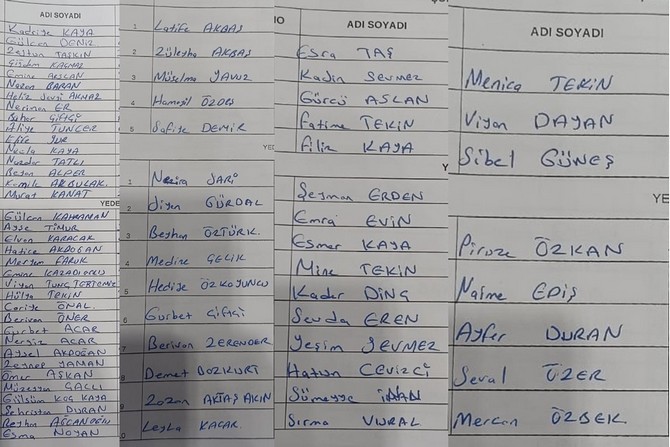 ADI SOYADI
Kadriye KAYA
Gülcan DENİZ
Zeytun TAŞKIN
Çiğdem KAÇMAZ
Emine ASLAN
Nazan BARAN
Nerimen ER
Bahar ÇİFTÇİ
Atiye TUNCER
Necla KAYA
Nuedar TATLI
Beyan ALPER
Kamile AKBULAK
Murat KANAT
YEDE
Gülcan KAHRAMAN
Ayşe TİMUR
Elvan KARACAR
Hatice AKDOĞAN
Meryem FARUK
Emine
Viyan TUNÇ
Hülya TEKİN
Cariye ÖNAL
Berivan ÖNER
Gurbet ACAR
Nergiz ACAR
Aysel AKDOĞAN
Zeynep YAMAN
Ömer AŞKAN
Müzeyyen SAÇLI
Gülsüm KOÇ KAYA
Sehristan DURAN
Beyhan
Esma NOYAN
1 Latife AKBAŞ
2 Züleyha AKBAŞ
3 Müselma YAVUZ
4 ÖZDEŞ
5 Safiye DEMİR
YED
1 Nezira SARİ
2 Jiyan GÜRDAL
3 Beyhan ÖZTÜRK.
4 Medine ÇELİK
5 Hediye ÖZKOYUNCU
6 Gurbet ÇİFTÇİ
7 Berivan ZERENDER
8 Demet BOZKURT
9 Zozan AKTAŞ AKIN
0 Leyla KAÇAR
NO
ADI SOYADI
Esra TAŞ
Kadın SEVMEZ
Gürcü ASLAN
Fatime TEKİN
Filiz KAYA
Y
Şeyman ERDEN
Emra EVİN
Esmer KAYA
Mine TEKİN
Kader DİNÇ
Sevda EREN
Yeşim SEVMEZ
Hatun CEVİZCİ
Sümeyye İNAN
Sırma VURAL
ADI SOYADI
Menica TEKİN
Viyan DAYAN
Sibel GÜNEŞ
YE
Piroze ÖZKAN
Naime EDİŞ
Ayfer DURAN
Seval ÖZER
Mercan ÖZBEK